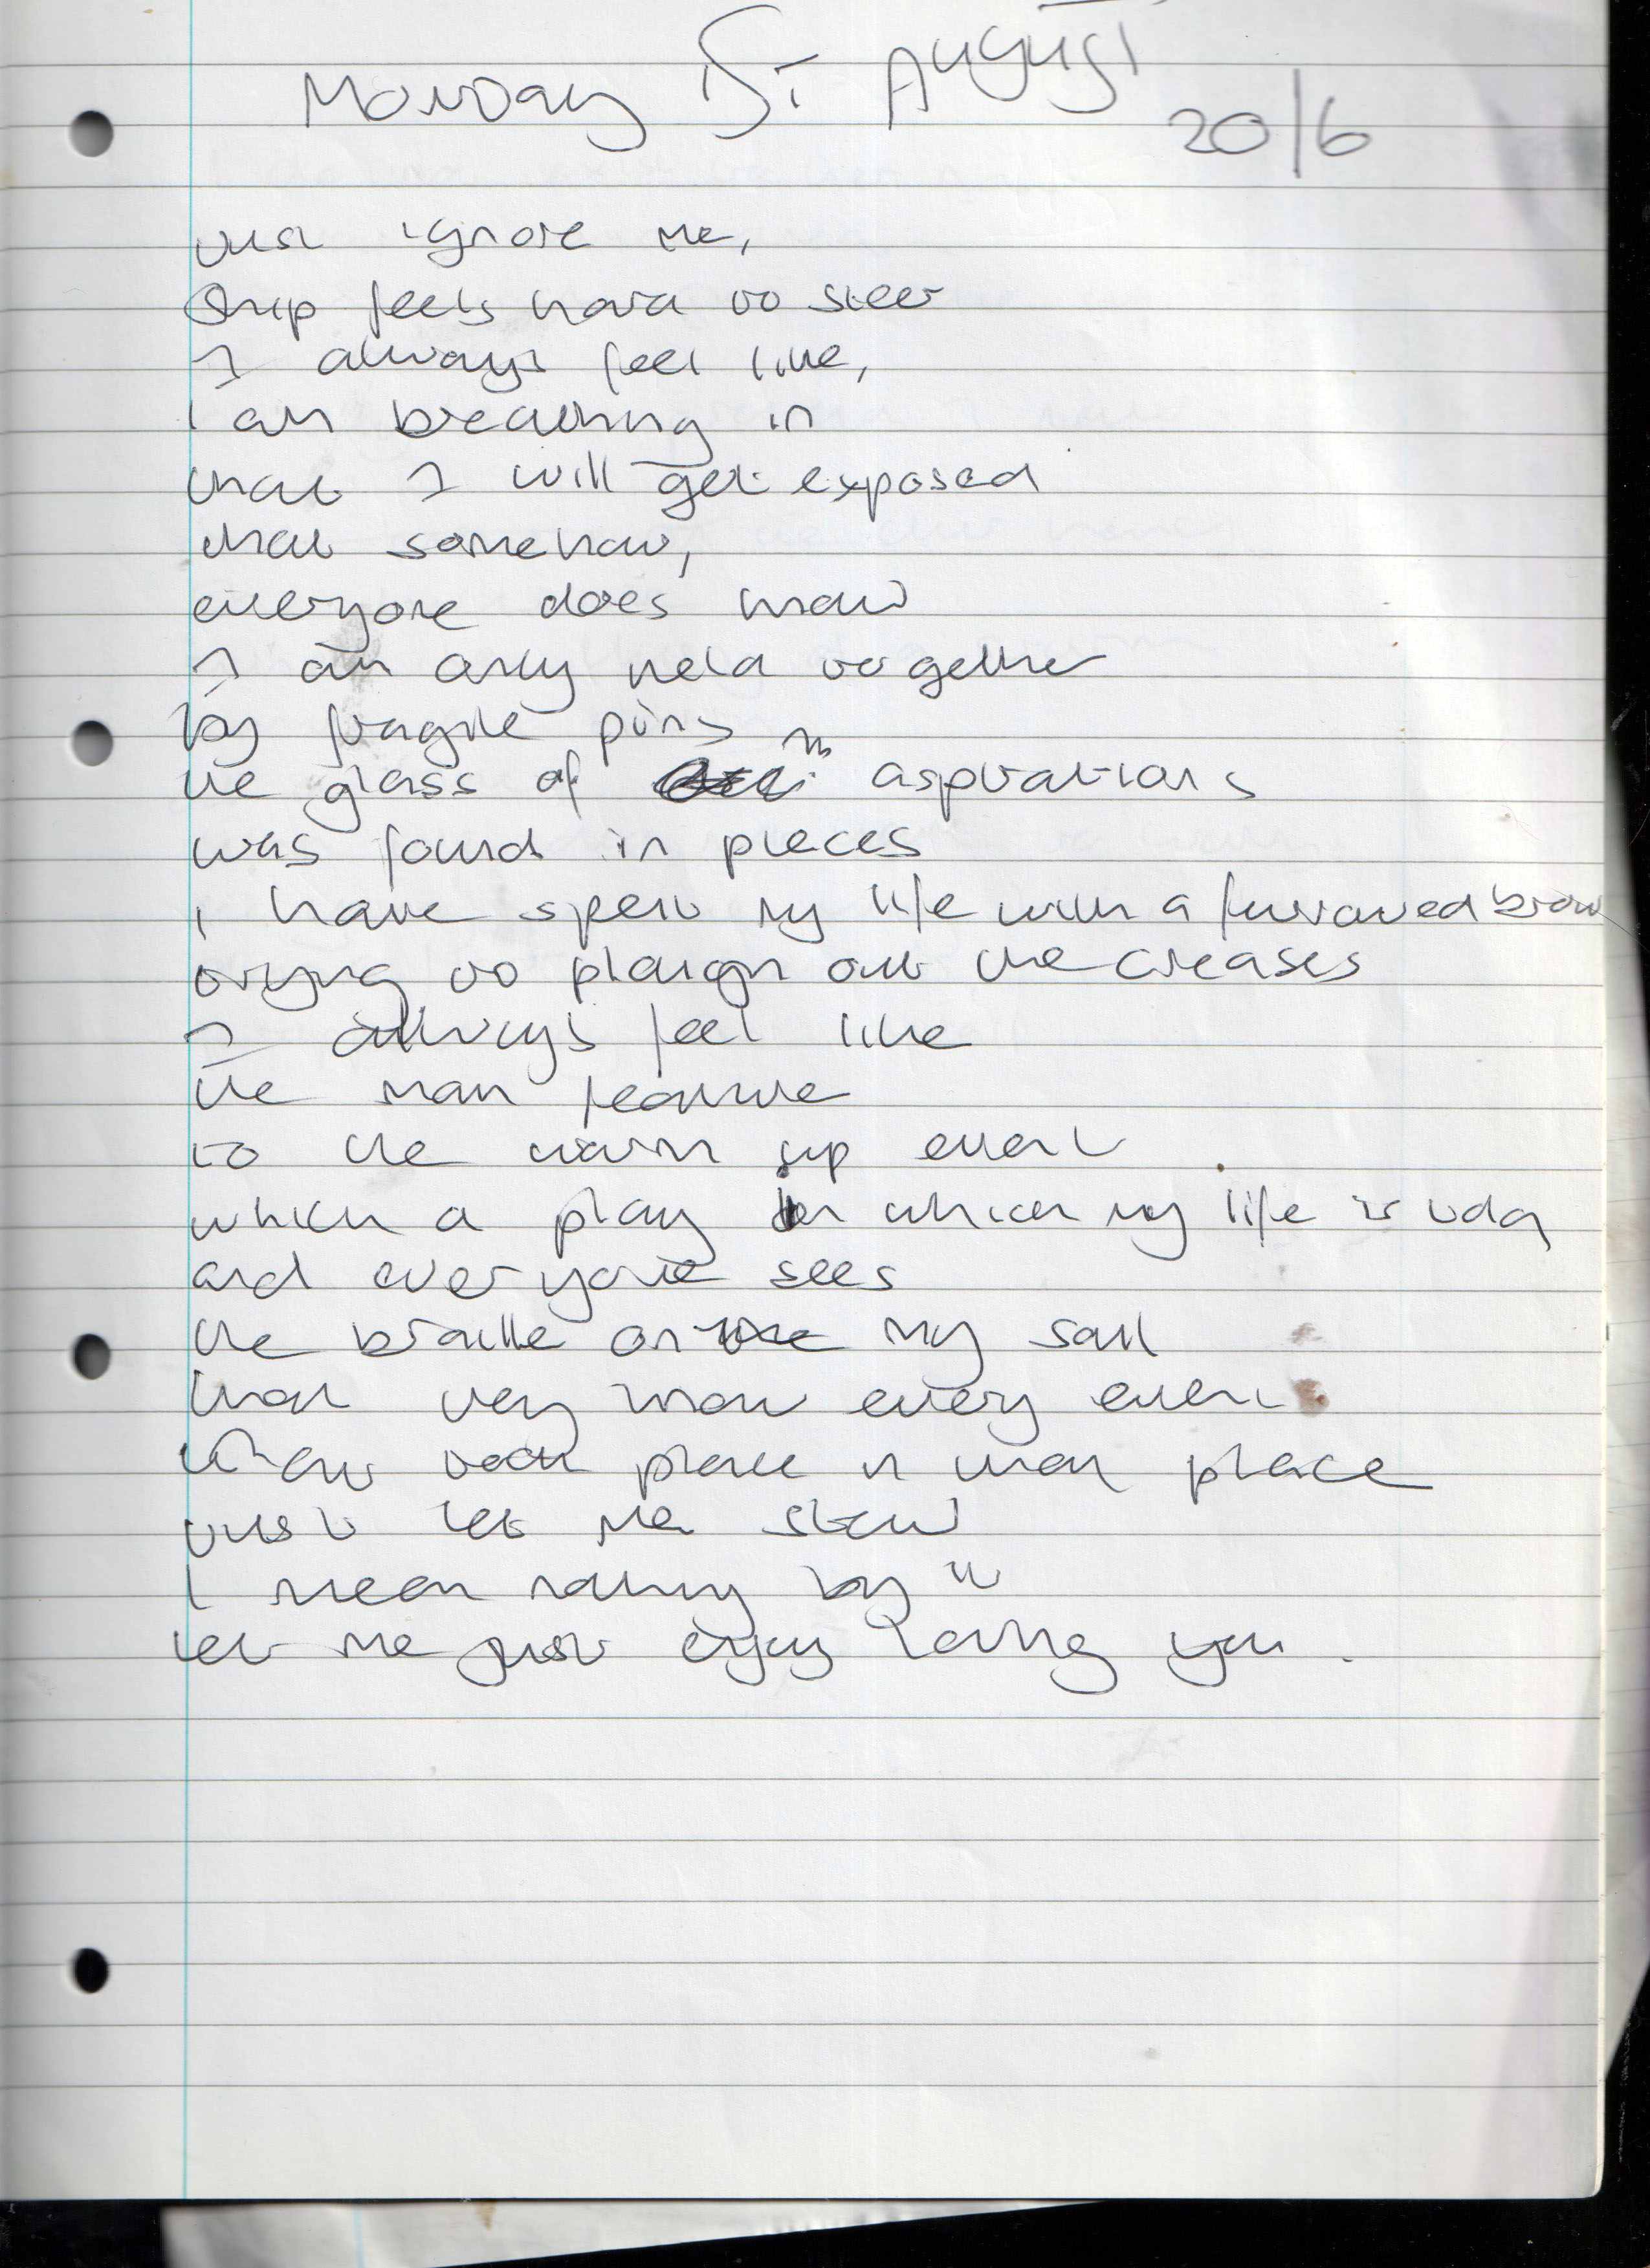 Monday 1st August
2016
just ignore me,
Ship feels hard to steer
I always feel like,
I am breathing in
that I will get exposed
that somehow,
everyone does know
I am only held together
by fragile pins
the glass of my aspirations
was found in pieces
I have spent my life with a furrowed brow
trying to plough out the creases
I always feel like
the main feature
to the warm up event
which a play in which my life is
and everyone sees
the braille on my soul
that very know every event
that place
just let me stew
I mean
let me just enjoy loving you.